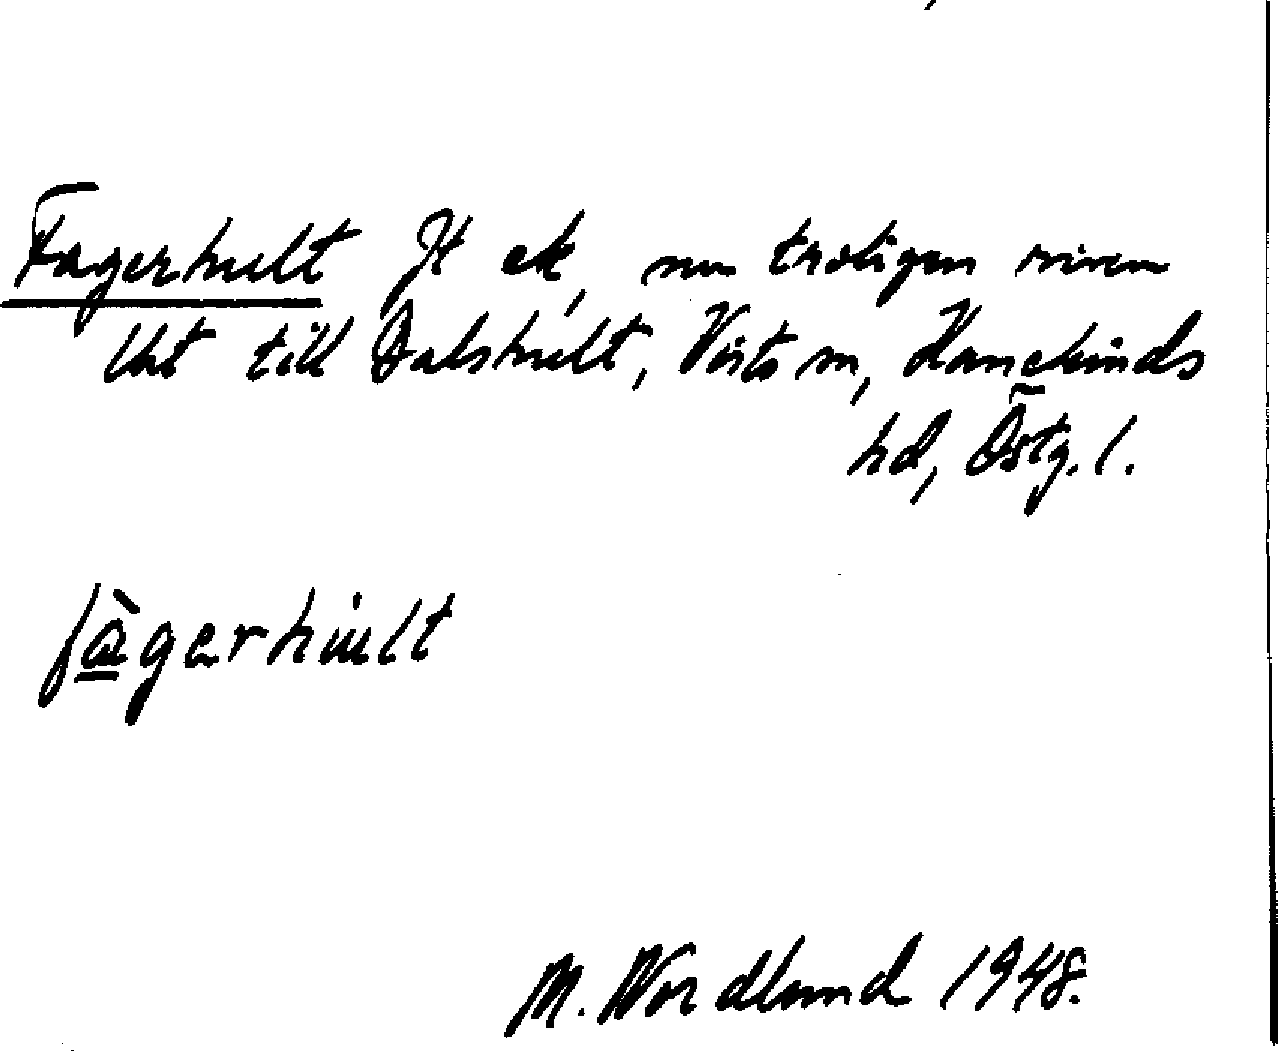 Fagerhult Jt ek, nu troligen riven
lht till Dalshult, Västa sn, Hanekinds
hd, Östg. l.
fàgerhult
M. Nordlund 1948.